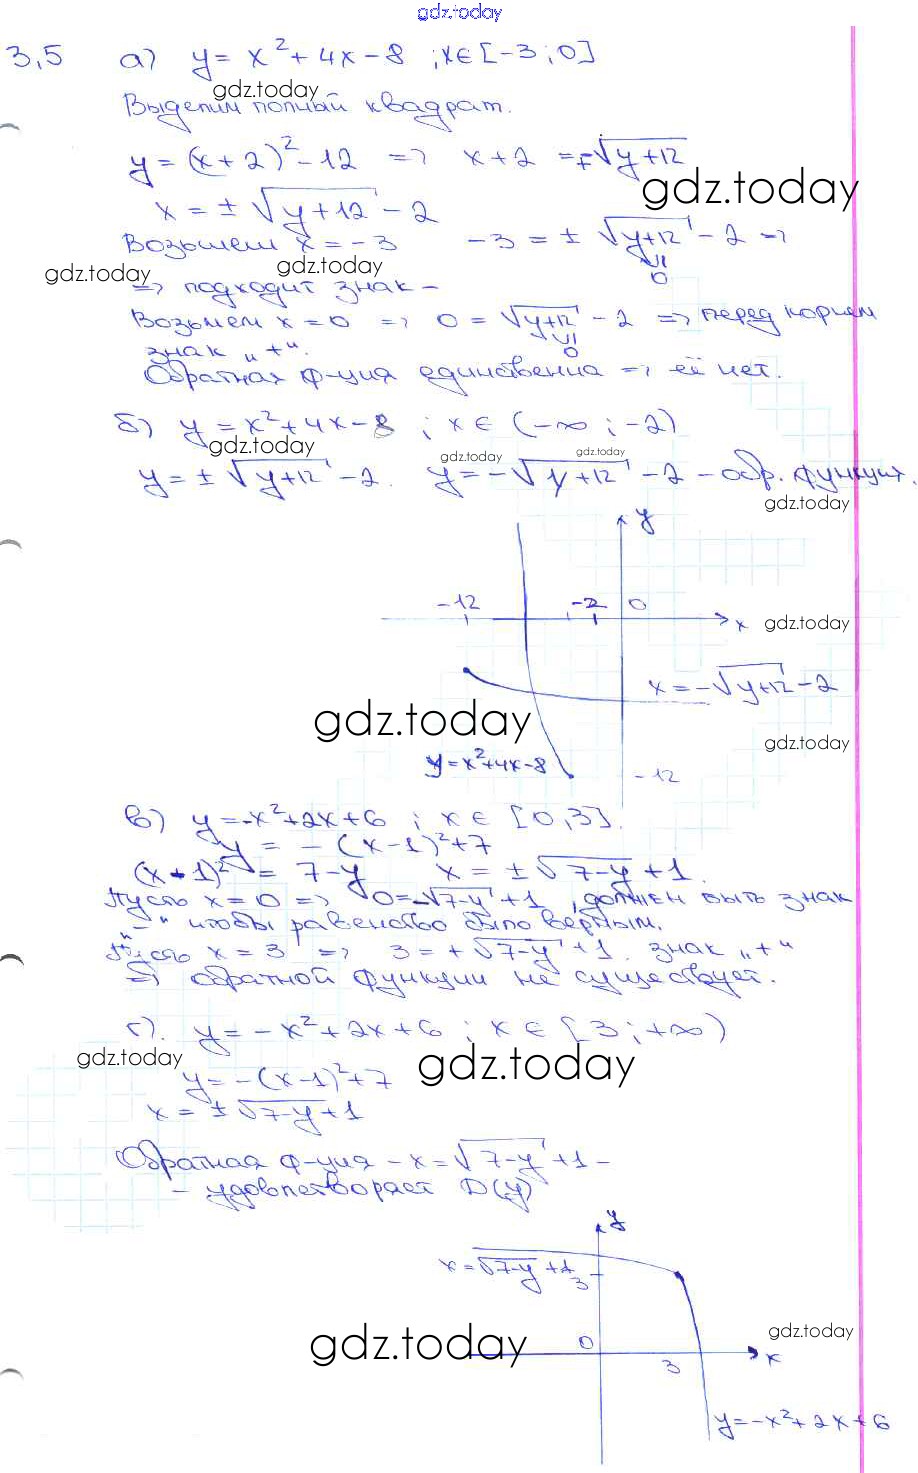 gdz.today
3,5 а) y = x² + 4x - 8 ; x ∈ [-3; 0]
gdz.today
Выделим полный квадрат.
y = (x+2)² - 12 => x+2 = ∓√(y+12)
gdz.today
x = ±√(y+12) - 2
Возьмем x = -3 -3 = ±√(y+12) - 2 =>
VII
0
gdz.today gdz.today
=> подходит знак -
Возьмем x = 0 => 0 = √(y+12) - 2 => перед корнем
VII
0
знак „+“.
Обратная ф-ция единственна => её нет.
б) y = x² + 4x - 8 ; x ∈ (-∞; -2)
gdz.today gdz.today gdz.today
y = ±√(y+12) - 2. y = -√(y+12) - 2 - обр. функция.
gdz.today
y
-12 -2 0
x gdz.today
x = -√(y+12) - 2
gdz.today
gdz.today
y = x² + 4x - 8
-12
в) y = -x² + 2x + 6 ; x ∈ [0, 3].
y = -(x-1)² + 7
(x-1)² = 7-y x = ±√(7-y) + 1.
Пусть x = 0 => 0 = -√(7-y) + 1, должен быть знак
„-“ чтобы равенство было верным.
Пусть x = 3 => 3 = +√(7-y) + 1. знак „+“
=> обратной функции не существует.
г). y = -x² + 2x + 6 ; x ∈ [3; +∞)
gdz.today gdz.today
y = -(x-1)² + 7
x = ±√(7-y) + 1
Обратная ф-ция - x = √(7-y) + 1 -
- удовлетворяет D(y)
y
x = √(7-y) + 1
3
gdz.today gdz.today
0
3 x
y = -x² + 2x + 6